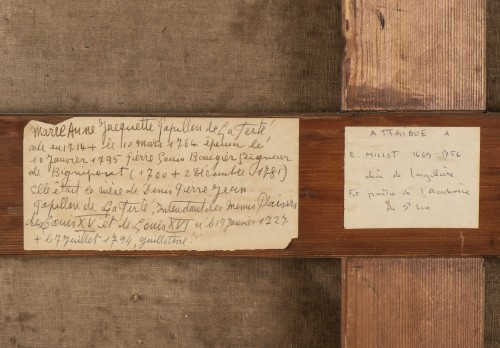 Marie Anne Jacquette Papillon de La Ferté
née en 1714 + le 10 mars 1764 épousa le
10 Janvier 1735 pierre Louis Baugier Seigneur
de Bignipont (1700 + 2 Décembre 1781)
Elle était la mère de Denis Pierre Jean
Papillon de La Ferté, intendant des Menus Plaisirs
de Louis XV et de Louis XVI né le 17 Janvier 1727
+ le 7 Juillet 1794, guillotiné
ATTRIBUÉ A
E. MILLOT 1669-1756
élève de Largillière
Fut peintre de l'Académie
de St Luc